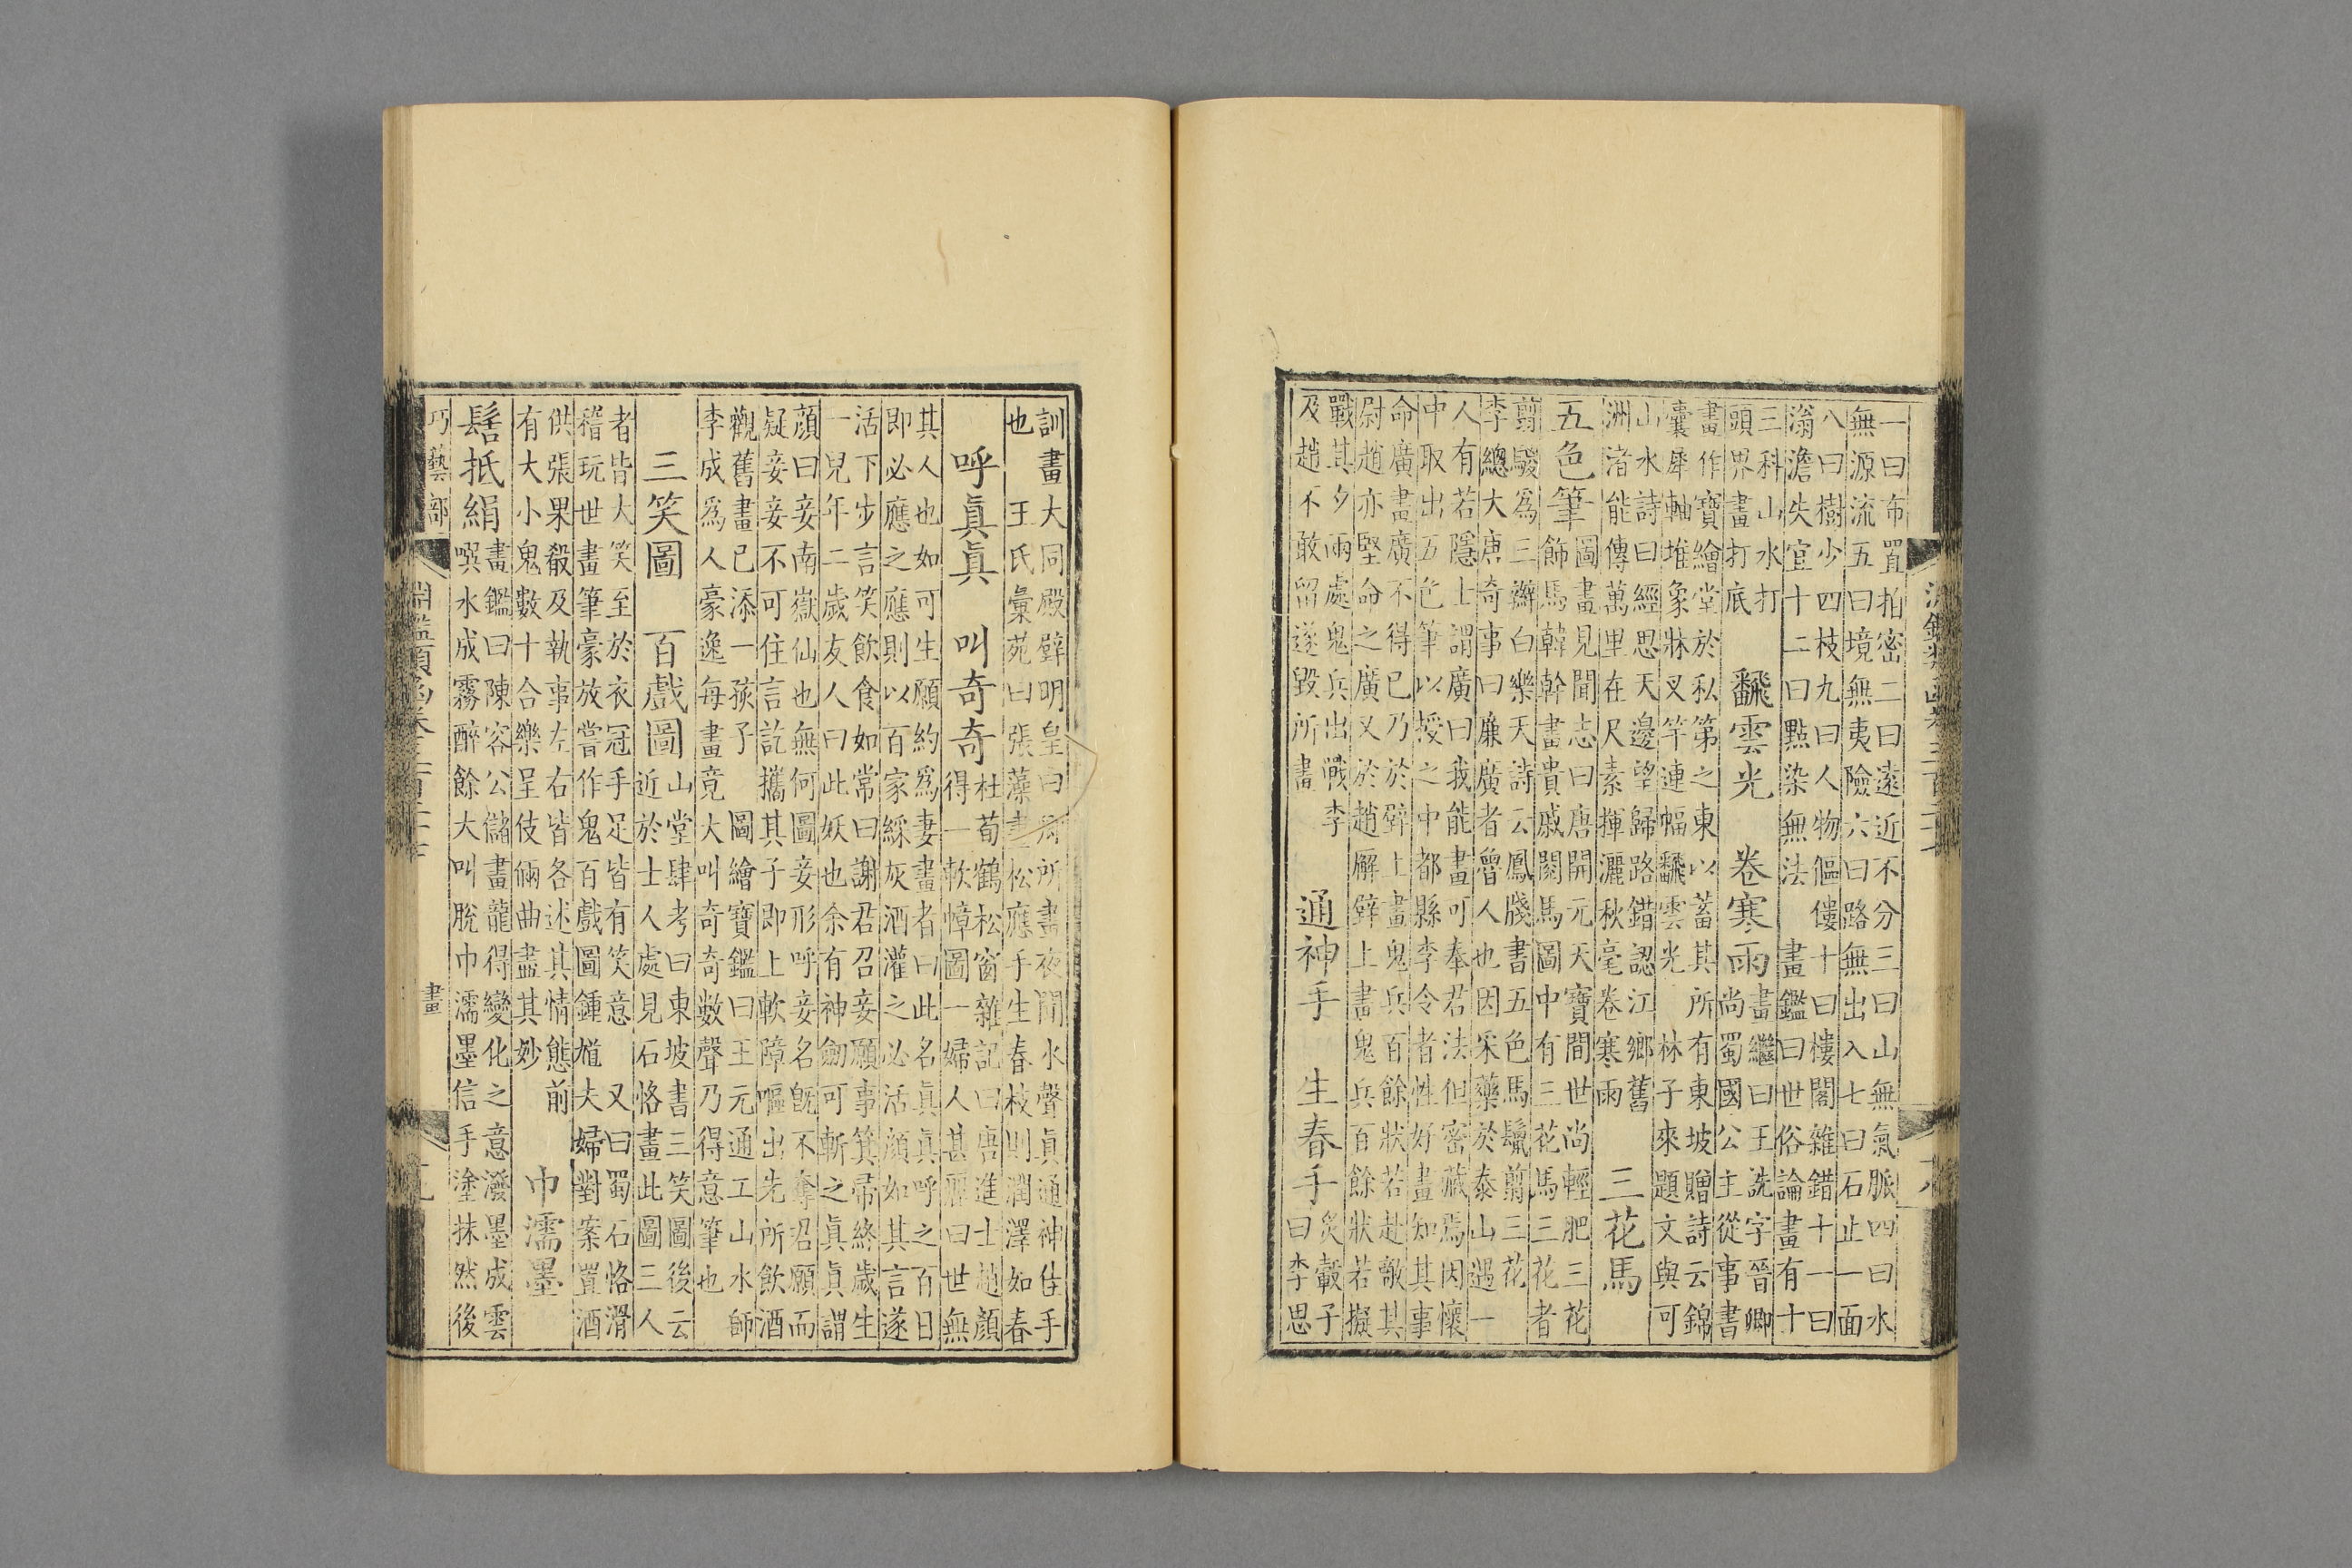 一曰布置拍密二曰遠近不分三曰山無氣脈四曰水
無源流五曰境無夷險六曰路無出入七曰石止一面
八曰樹少四枝九曰人物傴僂十曰樓閣雜錯十一曰
滃澹失宜十二曰點染無法 畫鑑曰世俗論畫有十
三科山水打
頭界畫打底
飜雲光 卷寒雨
畫繼曰王詵字晉卿
尚蜀國公主從事書
畫作寶繪堂於私第之東以蓄其所有東坡贈詩云錦
囊犀軸堆象牀叉竿連幅飜雲光 林子來題文與可
山水詩曰經思天邊望歸路錯認江鄉舊
洲渚能傳萬里在尺素揮灑秋毫卷寒雨
三花馬
五色筆
圖畫見聞志曰唐開元天寶間世尚輕肥三花
飾馬韓幹畫貴戚閱馬圖中有三花馬三花者
剪騣爲三辮白樂天詩云鳳牋書五色馬鬣剪三花
李總大唐奇事曰廉廣者魯人也因采藥於泰山遇一
人有若隱士謂廣曰我能畫可奉君法但密藏焉因懷
中取出五色筆以授之中都縣李令者性好畫知其事
命廣畫廣不得已乃於壁上畫鬼兵百餘狀若赴敵其
尉趙亦堅命之廣又於趙廨壁上畫鬼兵百餘狀若擬
戰其夕兩處鬼兵出戰李
及趙不敢留遂毀所畫
通神手 生春手
炙轂子
曰李思
訓畫大同殿壁明皇曰所畫夜聞水聲真通神佳手
也 王氏彙苑曰張藻畫松應手生春枝則潤澤如春
呼眞眞 叫奇奇
杜荀鶴松窗雜記曰唐進士趙顏
得一軟幛圖一婦人甚麗曰世無
其人也如可生願約爲妻畫者曰此名眞眞呼之百日
即必應之應則以百家綵灰酒灌之必活顏如其言遂
活下步言笑飲食如常曰謝君召妾願事箕帚終歲生
一兒年二歲友人曰此妖也余有神劒可斬之眞眞謂
顏曰妾南嶽仙也無何圖妾形呼妾名旣不奪君願而
疑妾妾不可住言訖攜其子即上軟障嘔出先所飲酒
觀舊畫已添一孩子 圖繪寶鑑曰王元通工山水師
李成爲人豪逸每畫竟大叫奇奇數聲乃得意筆也
三笑圖 百戲圖
山堂肆考曰東坡書三笑圖後云
近於士人處見石恪畫此圖三人
者皆大笑至於衣冠手足皆有笑意 又曰蜀石恪滑
稽玩世畫筆豪放嘗作鬼百戲圖鍾馗夫婦對案置酒
供張果殽及執事左右皆各述其情態前
有大小鬼數十合樂呈伎倆曲盡其妙
巾濡墨
髻抵絹
畫鑑曰陳容公儲畫龍得變化之意潑墨成雲
噀水成霧醉餘大叫脫巾濡墨信手塗抹然後
巧藝部
畫